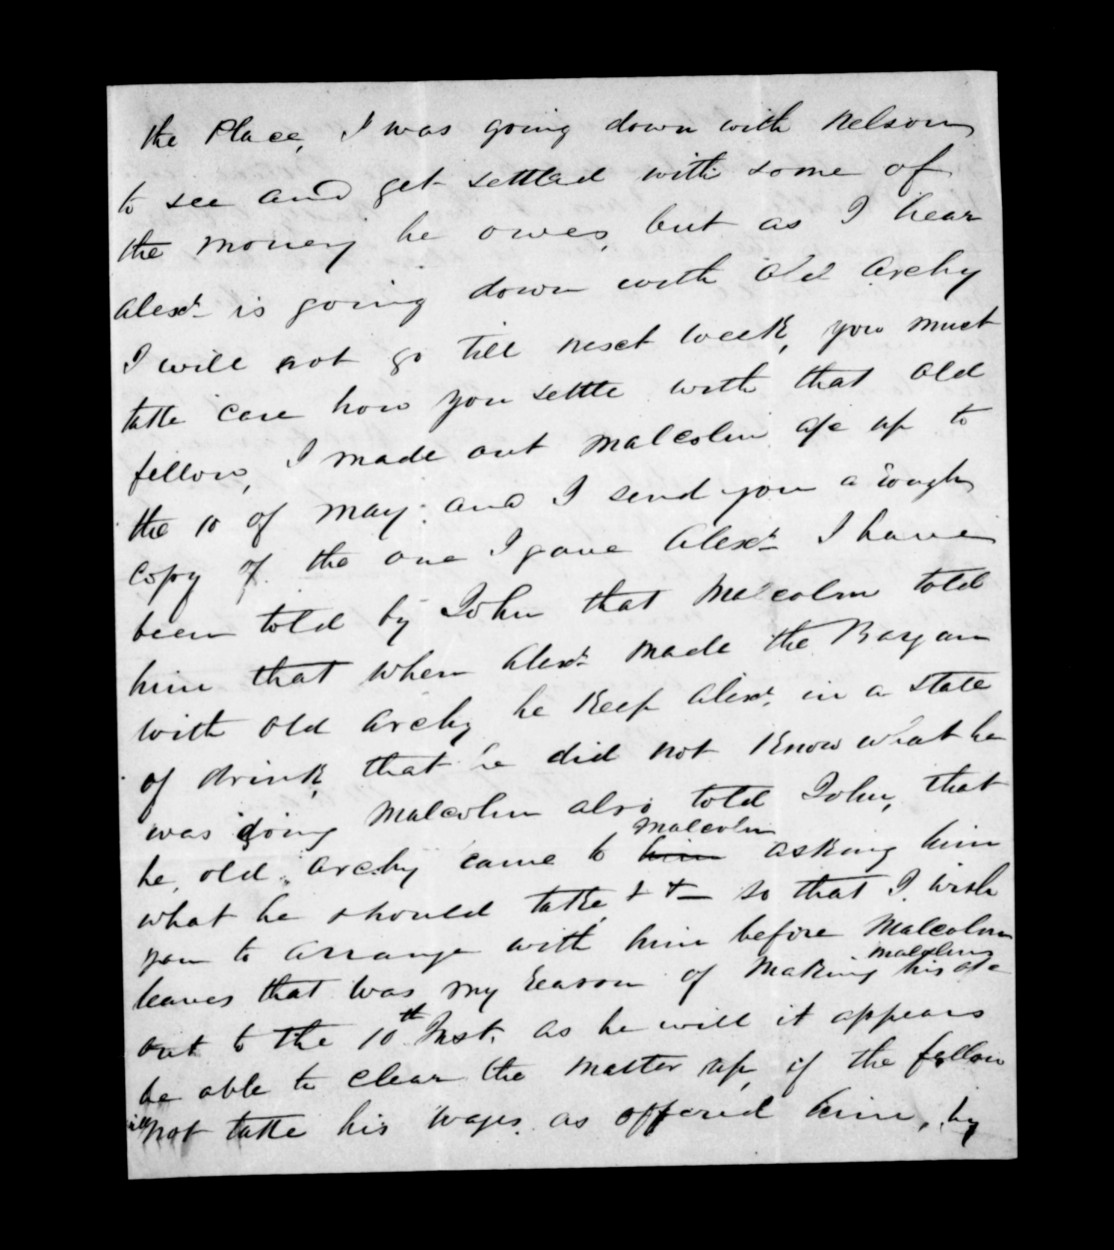 the Place, I was going down with Nelson
to see and get settled with some of
the money he owes, but as I hear
Alexr. is going down with old Archy
I will not go till next week, you must
take care how you settle with that old
fellow, I made out Malcolm a/c up to
the 10 of May and I send you a rough
copy of the one I gave Alexr. I have
been told by John that Malcolm told
him that when Alexr. made the Bargan
with old Archy he keep Alexr. in a state
of drink, that he did not know what he
was doing Malcolm also told John, that
he, old Archy came to him Malcolm asking him
what he should take & &— so that I wish
you to arrange with him before Malcolm
leaves that was my reason of making his Malcolms a/c
out to the 10th Inst. as he will it appears
be able to clear the matter up, if the fellow
will not take his wages as offered him, by